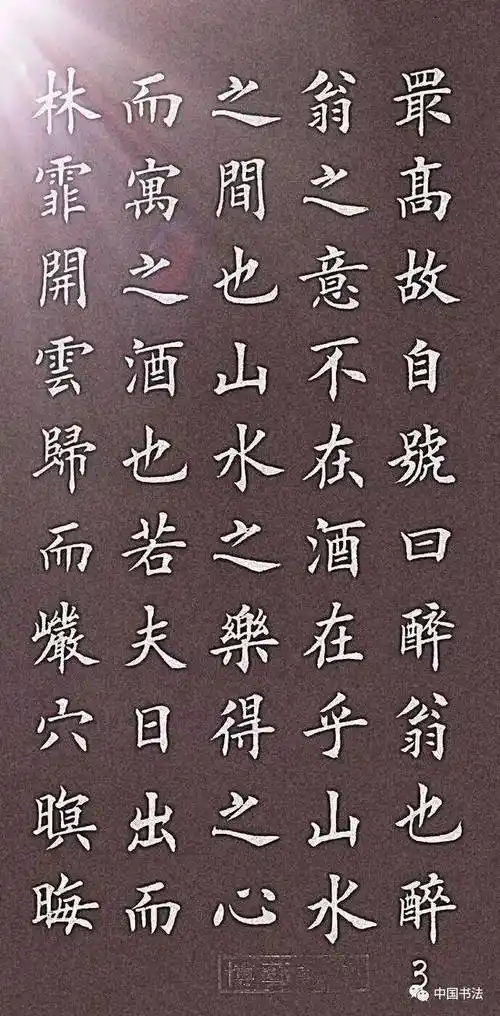 最高故自號曰醉翁也醉
翁之意不在酒在乎山水
之間也山水之樂得之心
而寓之酒也若夫日出而
林霏開雲歸而巖穴暝晦
3
中国书法